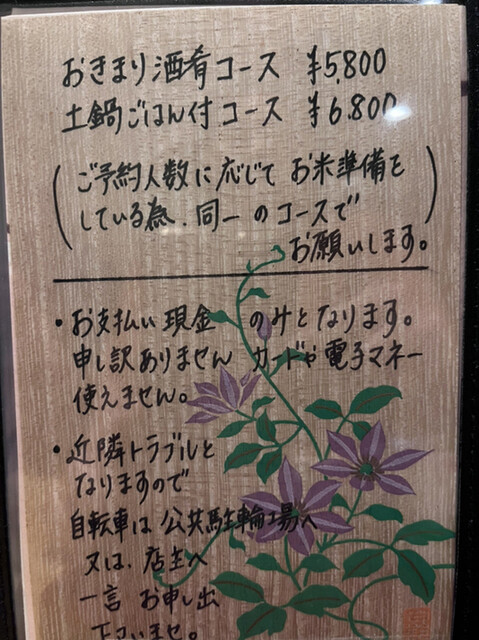 おきまり酒肴コース ¥5,800
土鍋ごはん付コース ¥6,800
(ご予約人数に応じてお米準備を
している為、同一のコースで
お願いします。)
・お支払い現金のみとなります。
申し訳ありませんカードや電子マネー
使えません。
・近隣トラブルと
なりますので
自転車は公共駐輪場へ
又は、店主へ
一言お申し出
下さいませ。